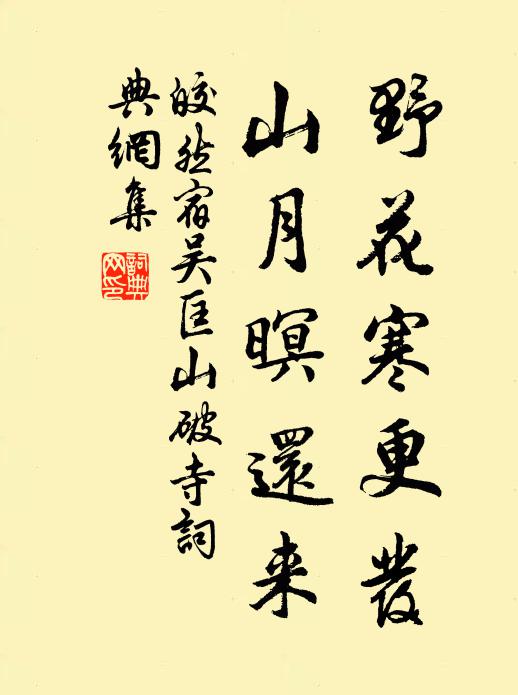 野花寒更發
山月暝還来
皎然宿吴匡山破寺詞
典網集
詞典网印